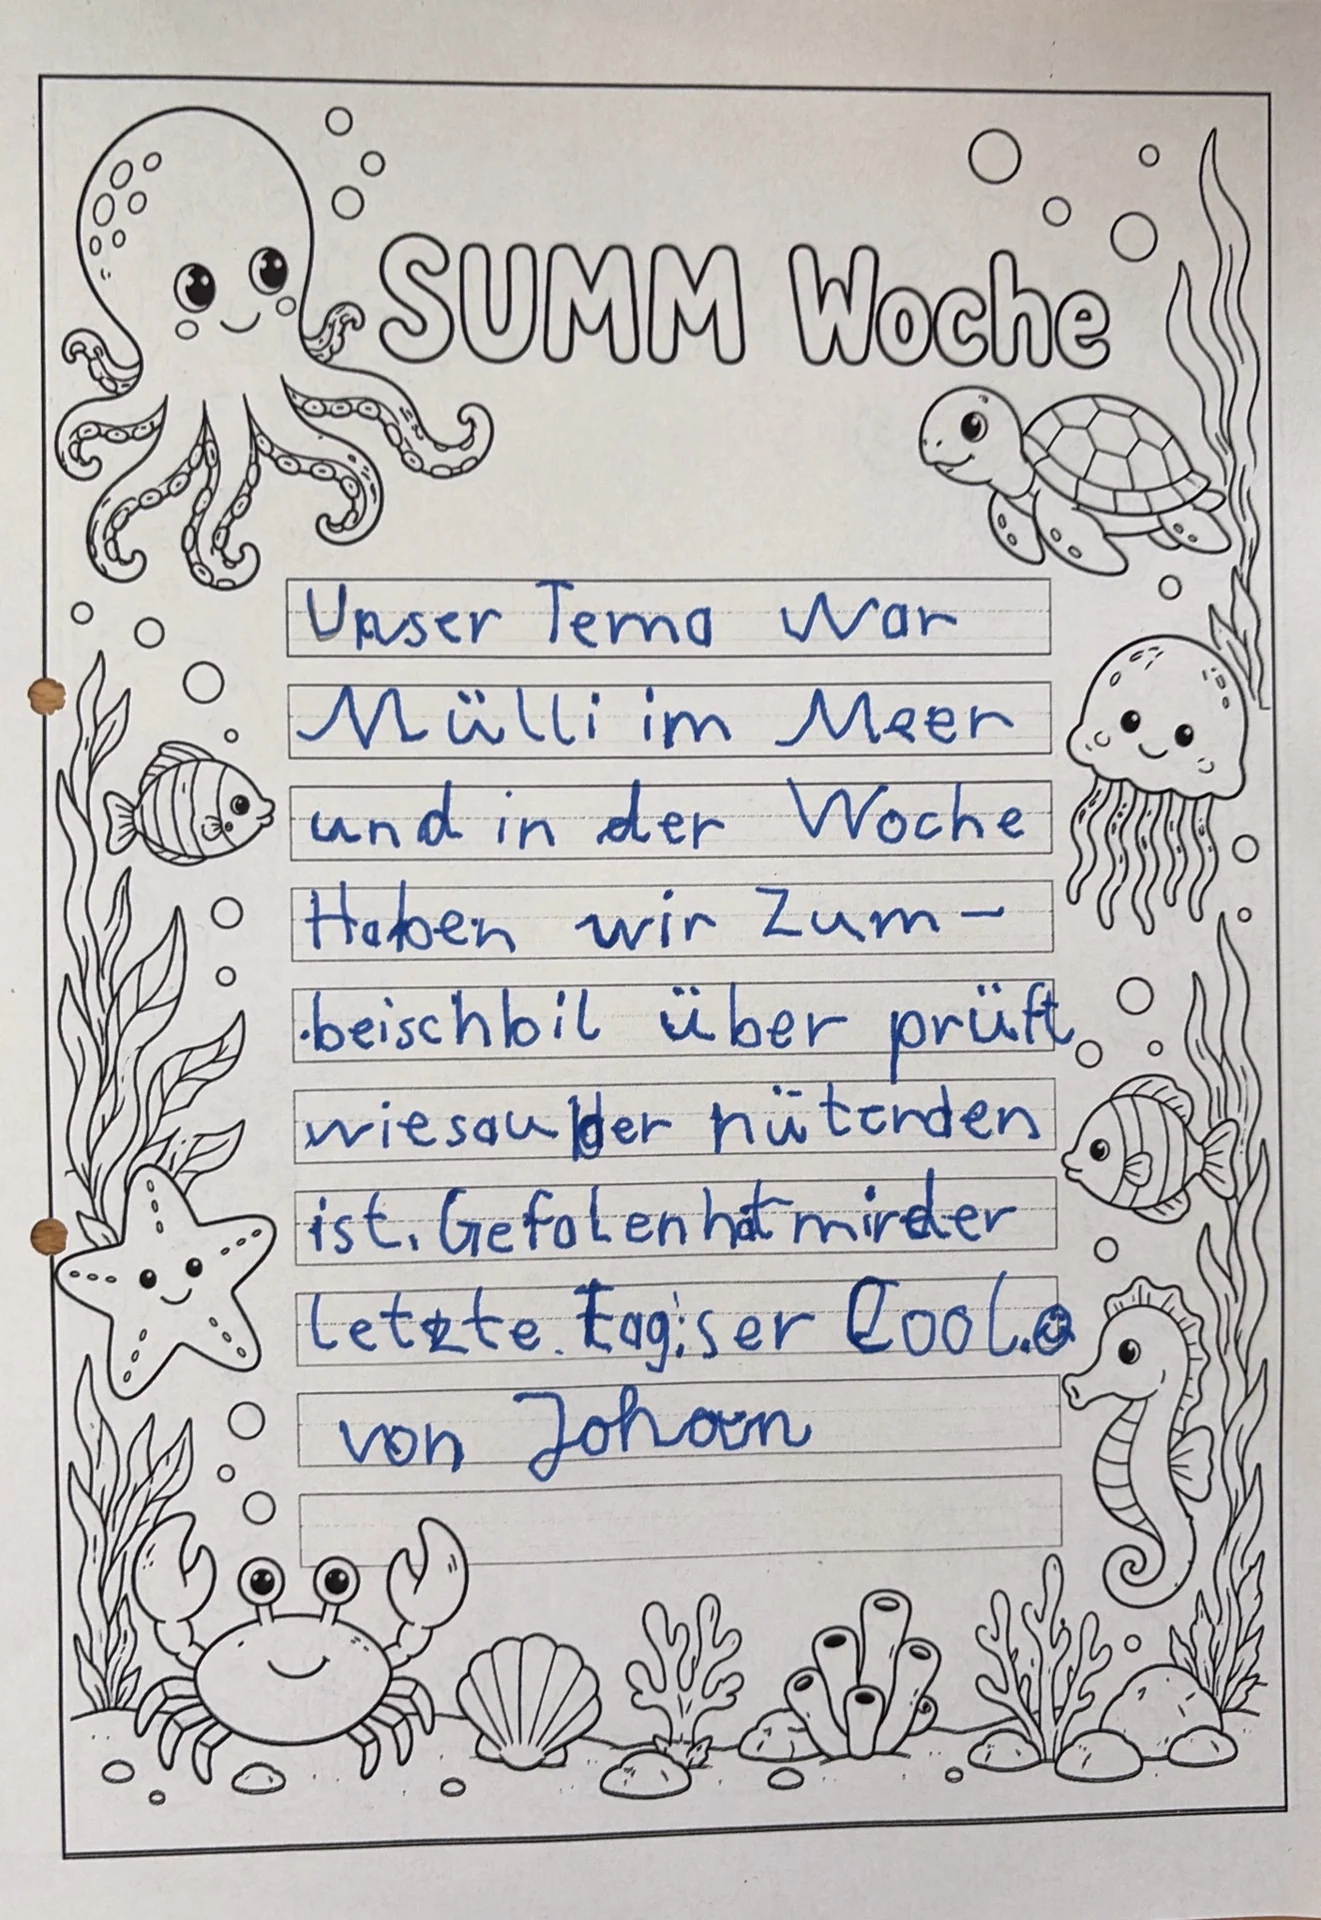 SUMM Woche
Unser Tema War
Mülli im Meer
und in der Woche
Haben wir Zum-
beischbil über prüft
wiesauber nütenden
ist. Gefalen hat mir der
letzte. Tag iser Cool.
von Johan